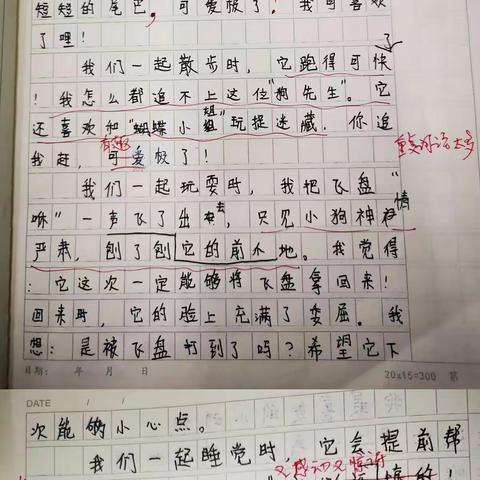 短短的尾巴，可爱极了！我可喜欢
了哩！
我们一起散步时，它跑得可快了
！我怎么都追不上这位"狗先生"。它
还喜欢和"蝴蝶小姐"玩捉迷藏，你追
我赶，可爱极了！
有趣
我们一起玩耍时，我把飞盘"
咻"一声飞了出去，只见小狗神情
严肃，刨了刨它的前小地。我觉得
：它这次一定能够将飞盘拿回来！
回来时，它的脸上充满了委屈。我
想：是被飞盘打到了吗？希望它下
日期： 年 月 日 20x15=300 第
DATE / /
次能够小心点。
我们一起睡觉时，它会提前帮
又感动又惊讶